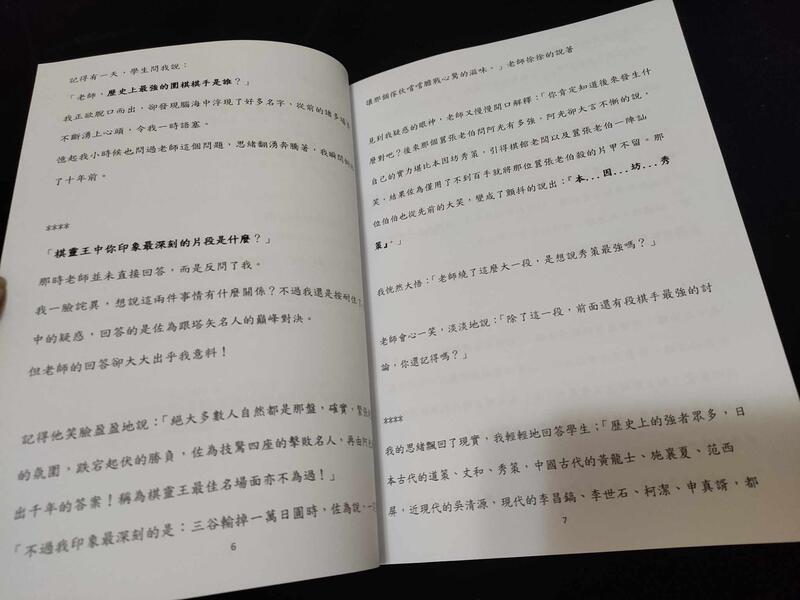 記得有一天，學生問我說：
「老師，歷史上最強的圍棋棋手是誰？」
我正欲脫口而出，卻發現腦海中浮現了好多名字，從前的諸多
不斷湧上心頭，令我一時語塞。
憶起我小時候也問過老師這個問題，思緒翻湧奔騰著，我瞬間
了十年前。
****
「棋靈王中你印象最深刻的片段是什麼？」
那時老師並未直接回答，而是反問了我。
我一臉詫異，想說這兩件事情有什麼關係？不過我還是按耐住
中的疑惑，回答的是佐為跟塔矢名人的巔峰對決。
但老師的回答卻大大出乎我意料！
記得他笑臉盈盈地說：「絕大多數人自然都是那盤，確實，緊張
的氛圍，跌宕起伏的勝負，佐為技驚四座的擊敗名人，再由阿光
出千年的答案！稱為棋靈王最佳名場面亦不為過！」
「不過我印象最深刻的是：三谷輸掉一萬日圓時，佐為說，一定
6
讓那個傢伙嚐嚐膽戰心驚的滋味。」老師徐徐的說著
見到我疑惑的眼神，老師又慢慢開口解釋：「你肯定知道後來發生什
麼對吧？後來那個囂張老伯問阿光有多強，阿光卻大言不慚的說，
自己的實力堪比本因坊秀策，引得棋館老闆以及囂張老伯一陣訕
笑，結果佐為僅用了不到百手就將那位囂張老伯殺的片甲不留。那
位伯伯也從先前的大笑，變成了顫抖的說出：『本...因...坊...秀
策』。」
我恍然大悟：「老師繞了這麼大一段，是想說秀策最強嗎？」
老師會心一笑，淡淡地說：「除了這一段，前面還有段棋手最強的討
論，你還記得嗎？」
****
我的思緒飄回了現實，我輕輕地回答學生；「歷史上的強者眾多，日
本古代的道策、丈和、秀策，中國古代的黃龍士、施襄夏、范西
屏，近現代的吳清源，現代的李昌鎬、李世石、柯潔、申真諝，都
7